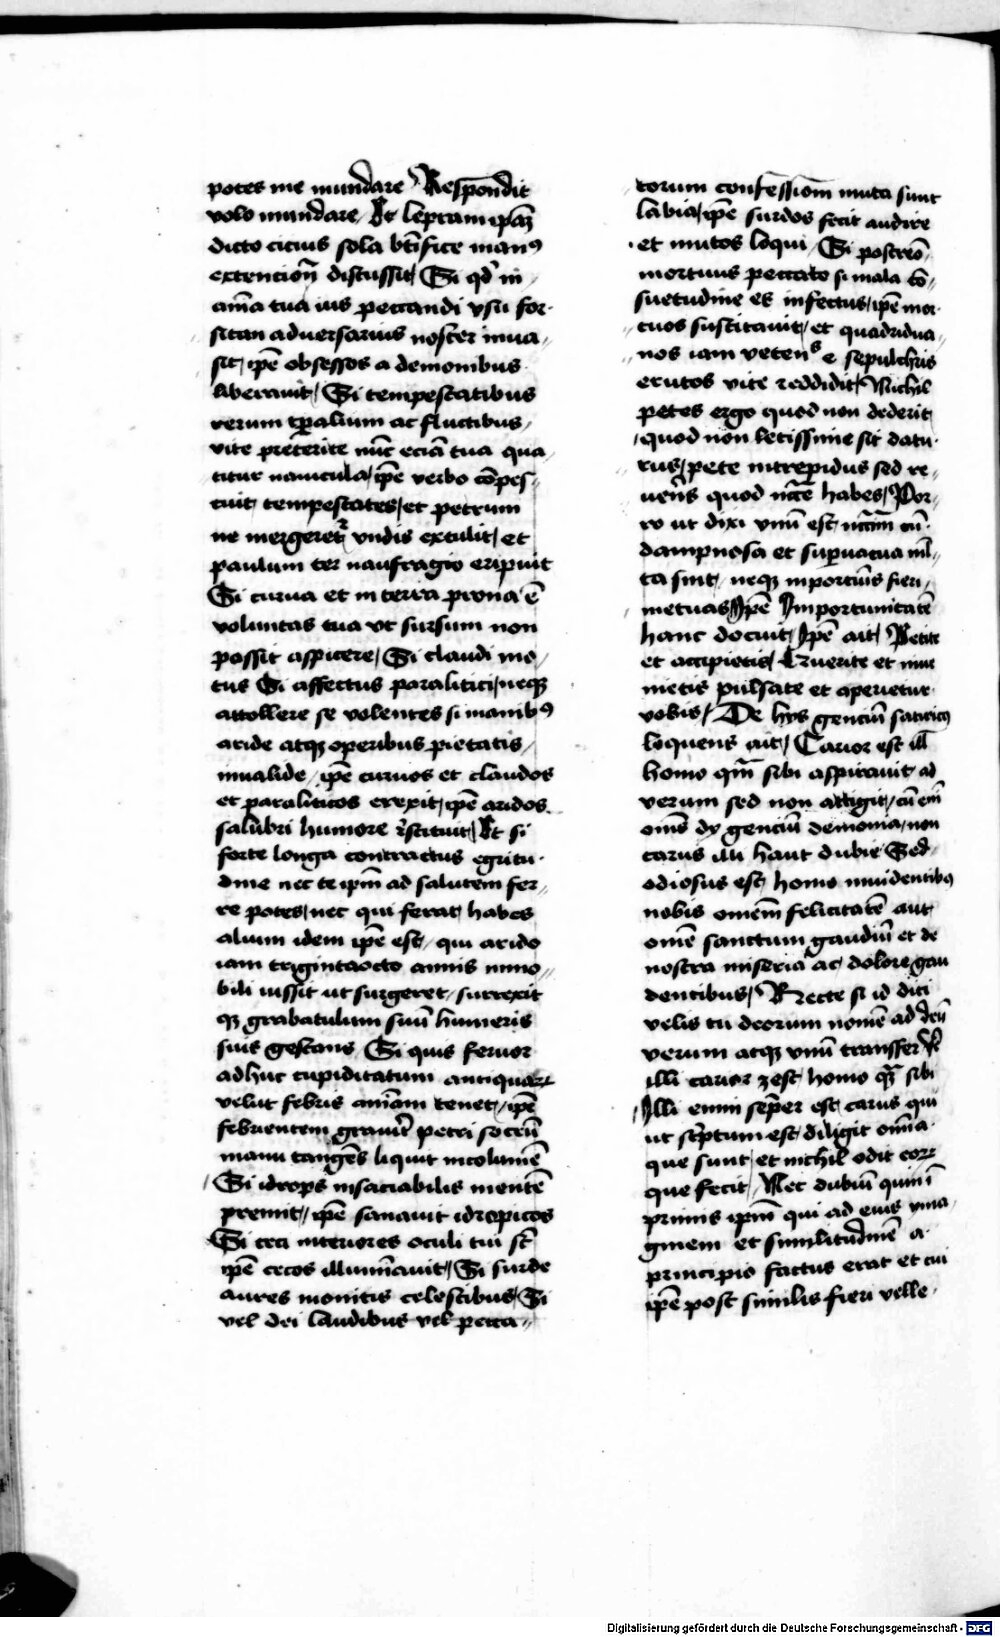 potes me mundare Respondit
volo mundare / Et lepram ipãȝ
dicto citius sola bn̄fice manꝰ
extention̄ discussit / Si qd̛ in
aīa tua ius peccandi usu for-
sitan adversarius noster inua-
sit / ip̄e obsessos a demonibus
liberavit / Si tempestatibus
rerum tp̄alium ac fluctibus /
vite preterite nūc eciā tua qua-
titur navicula / ip̄e verbo cōpes-
cuit tempestates / et petrum
ne mergeret᷑ undis extulit / et
paulum ter naufragio eripuit
Si curva et in terra prona ē
voluntas tua ut sursum non
possit aspicere / Si claudi mo-
tus Si affectus paralitici / neqȝ
attollere se volentes si manibꝰ
aride atqȝ operibus pietatis /
invalide / ip̄e curvos et claudos
et paraliticos erexit / ip̄e aridos
salubri humore r̄stituit / Et si
forte longa contractus egritu-
dine nec te ip̄m ad salutem fer-
re potes / nec qui ferat / habes
alium idem ip̄e est / qui arido
iam trigintaocto annis inmo-
bili iussit ut surgeret / surrexit
qȝ grabatulum suū humeris
suis gestans / Si quis fervor
adhuc cupiditatum antiquarꝝ
velut febris anīam tenet / ip̄e
febrientem gravit᷑ petri socrū
manu tangēs liquit incolumē
/ Si idrops insaciabilis mentē
premit / ip̄e sanavit idropicos
Si ceci interiores oculi tui st̄
ip̄e cecos illumīavit / Si surde
aures monitis celestibus / Si
vel dei laudibus vel pecca-
torum confessiōm muta sunt
labia / ip̄e surdos fecit audire
et mutos loqui / Si postreō
mortuus peccato si mala cō-
suetudine es infectus / ip̄e mor-
tuos suscitavit / et quadridua-
nos iam vetenˢ e sepulchris
erutos vite reddidit / Nichil
petes ergo quod non dederit
/ quod non letissime sit datu-
rus / pete intrepidus sed re-
verēs quod nc̄cē habes / Por-
ro ut dixi unū est nc̄c̄m cū
dampnosa et supvacua ml̄-
ta sint / neqȝ inportūs fieri /
metuas / Ip̄e Importunitatē
hanc docuit / Ip̄e ait / Petite
et accipietis / Querite et inve-
nietis pulsate et aperietur
vobis / De hys genciū satiricꝰ
loquens ait / Carior est ill̄
homo qm̄ sibi aspiravit ad
verum sed non attigit / cū em̄
oms̄ dy genciū demonia / non
carus illi haut dubie Sed
odiosus est homo invidentibꝰ
nobis omnēm felicitatē aut
omē sanctum gaudiū et de
nostra miseria ac dolore gau
dentibus / Recte si id dici
velis tu deorum nomē ad deū
verum atqȝ unū transfer Ut̄
illi carior ȝ est homo qᷓȝ sibi
/ Illi enim sēper est carus qui
ut sc̄ptum est / diligit om̄ia
que sunt / et nichil odit eorꝝ
que fecit / Nec dubiū quin ī
primis ip̄m qui ad eius yma-
ginem et similitudinē a
principio factus erat et cui
ip̄e post similis fieri velle
Digitalisierung gefördert durch die Deutsche Forschungsgemeinschaft - DFG